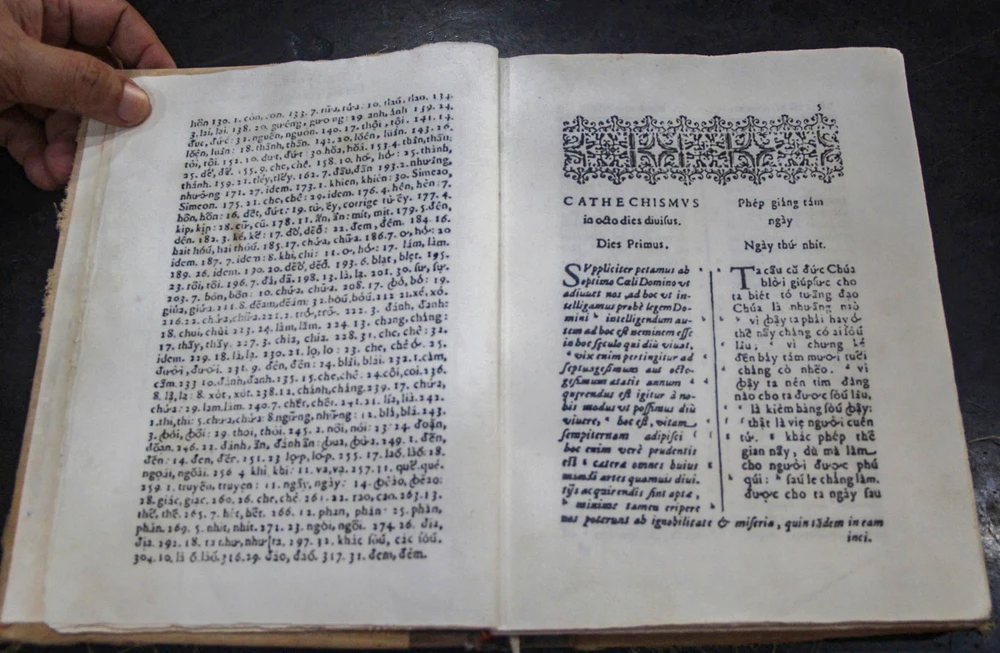 hôn 130. 1. con, con. 133. 7. 10. 134.
3. lai, lai. 138. 20. guéng, gương: 29. anh, ảnh 139. 24.
đuc, đức: 32. nguên, nguon. 140. 17. thội, tội. 141. 14.
lôên, luân: 18. thánh, thân. 142. 20. lôên, luân. 143. 26.
tói, tội. 151. 10. dưt, đứt: 30 hóa, hỏa. 153. 4. thân, thân:
25. dê, đế. 9. che, chê. 158. 10. hơ, hớ: 25. thành,
thánh. 159. 21. 162. 7. đâu, đấu 193. 2. nhưâng,
nhưởng 171. 27. idem. 173. 1. khien, khiên: 30. Simeao,
Simeon. 175. 21. che, chê: 29. idem. 176. 4. hén, hèn: 7.
hôn, hồn: 16. dêt, đứt: 19. tư ếy, corrige tử ếy. 177. 4.
kip, kịp: 28. cũ. 178. 11. ăn, ẩn: mít, mit. 179. 5. dên,
dến. 182. 3. kẻ, kể: 17. 22. đem, đêm. 184. 16.
hait hóú, hai thóú. 185. 17. chứa, chữa. 186. 7. 20
idem. 187. 7. idem: 8. khi, chi: 17. lám, làm.
289. 26. idem. 130. 20. 193. 6. blat, blẹt. 195.
23. tôi, tôi. 196. 7. đá, đã. 198. 13. là, lạ. 201. 30. sư, sự.
203. 7. bón, bốn: 10. chưa, chữa. 208. 17. 19.
giúa, giữa. 211. 8. đĕam, đếám: 32. bóú, bóú. 212 21. xé, xô.
216. 22. chữa, chữa. 221. 2. trở, trở. 222. 3. đánh, đanh:
18. chui, chùi 213. 24. lám, lâm. 224. 13. chang, chăng:
17. thấy, thấy. 227. 3. chia, chia. 228. 31. che, chê: 32.
idem. 229. 18. lả, lạ. 230. 21. lọ, lo: 23. che, chê 25.
đươi, đưới. 231. 9. đên, đến: 24. blái, blái. 132. 1. cảm,
cấm. 133 10. đánh, đanh. 135. 15. che, chê: 24. côi, coi. 136.
8. lâ, lạ: 8. xót, xút. 238. 12. chánh, chăng. 239. 17. chứa,
chữa: 29. lam, làm. 240. 7. chết, chết. 241. 21. lía, lià. 242.
1. thi, thì: 5. chưa, chữa: 8. ngững, những: 12. blả, blả. 243.
29. thoi, thói. 245. 2. nói, nói: 23: 24. đoạn,
đoan. 246. 22. đánh, ẩn, đánh ẩn: 249. 1. đên,
đến: 14. đen, đêr. 151. 23 lợp, lớp. 255. 17. laõ. laõ. 18.
ngoài, ngoài. 256 4 khi khi: 11. va, vạ. 257. 31. quê, quê.
259. 1. truyền, truyện: 11. nấy, nầy: 14.
28. giác, giac. 260. 26. che, chê. 261. 22. rao, cao. 263. 13.
thẻ, thế. 265. 7. hét, hết. 266. 12. phan, phán: 25. phàn,
phàn. 269. 5. nhit, nhít. 271. 23. ngòi, ngôi. 274 26. địa,
địa. 292. 18. 297. 32. khác các
304. 10. 316. 29. đảo, đaõ. 317. 31. đem, đếm.
5
CATHECHISMVS
in octo dies diuisus.
Dies Primus.
SVppliciter petamus ab
Optimo Cæli Domino vt
adiuuet nos, ad hoc vt in-
telligamus probè legem Do-
mini ᵇ intelligendum au-
tem ad hoc est neminem esse
in hoc sęculo qui diù viuat,
ᶜ vix enim pertingitur ad
septuagesimum aut octo-
gesimum ætatis annum ᵈ
quęrendus est igitur à no-
bis modus vt possimus diù
viuere, ᵉ hoc est, vitam
sempiternam adipisci ᶠ
hoc enim verè prudentis
est ᵍ cætera omnes huius
mundi artes quamuis diui-
tijs acquirendis sint aptæ,
ʰ minime tamen eripere
nos poterunt ab ignobilitate & miseria, quin tādem in eam
inci.
Phép giảng tám
ngày
Ngày thứ nhít.
Ta cầu cŭ đức Chúa
blời giúpsức cho
ta biét tỏ tưầng đạo
Chúa là nhưầng nào
ᵇ vì ꞗậy ta phải hay ở
thế nầy chảng có ai sóú
lâu; ᶜ vì chưng kẻ
đến bảy tám mươi tưởi
chảng có nhềo. ᵈ vì
ꞗậy ta nên tìm đàng
nào cho ta được sóú lâu,
ᵉ là kiếm hàng sóú ꞗậy:
ᶠ thật là viẹ người cuến
tử. ᵍ khác phép thế
gian nầy, dù mà làm
cho người được phú
quí: ʰ saú le chảng làm.
được cho ta ngày sau